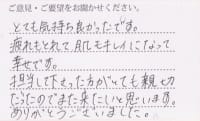 ご意見・ご要望をお聞かせください。
とても気持ち良かったです。
疲れもとれて、肌もキレイになって
幸せです。
担当して下さった方がとても親切
だったのでまた来たいと思います。
ありがとうございました。